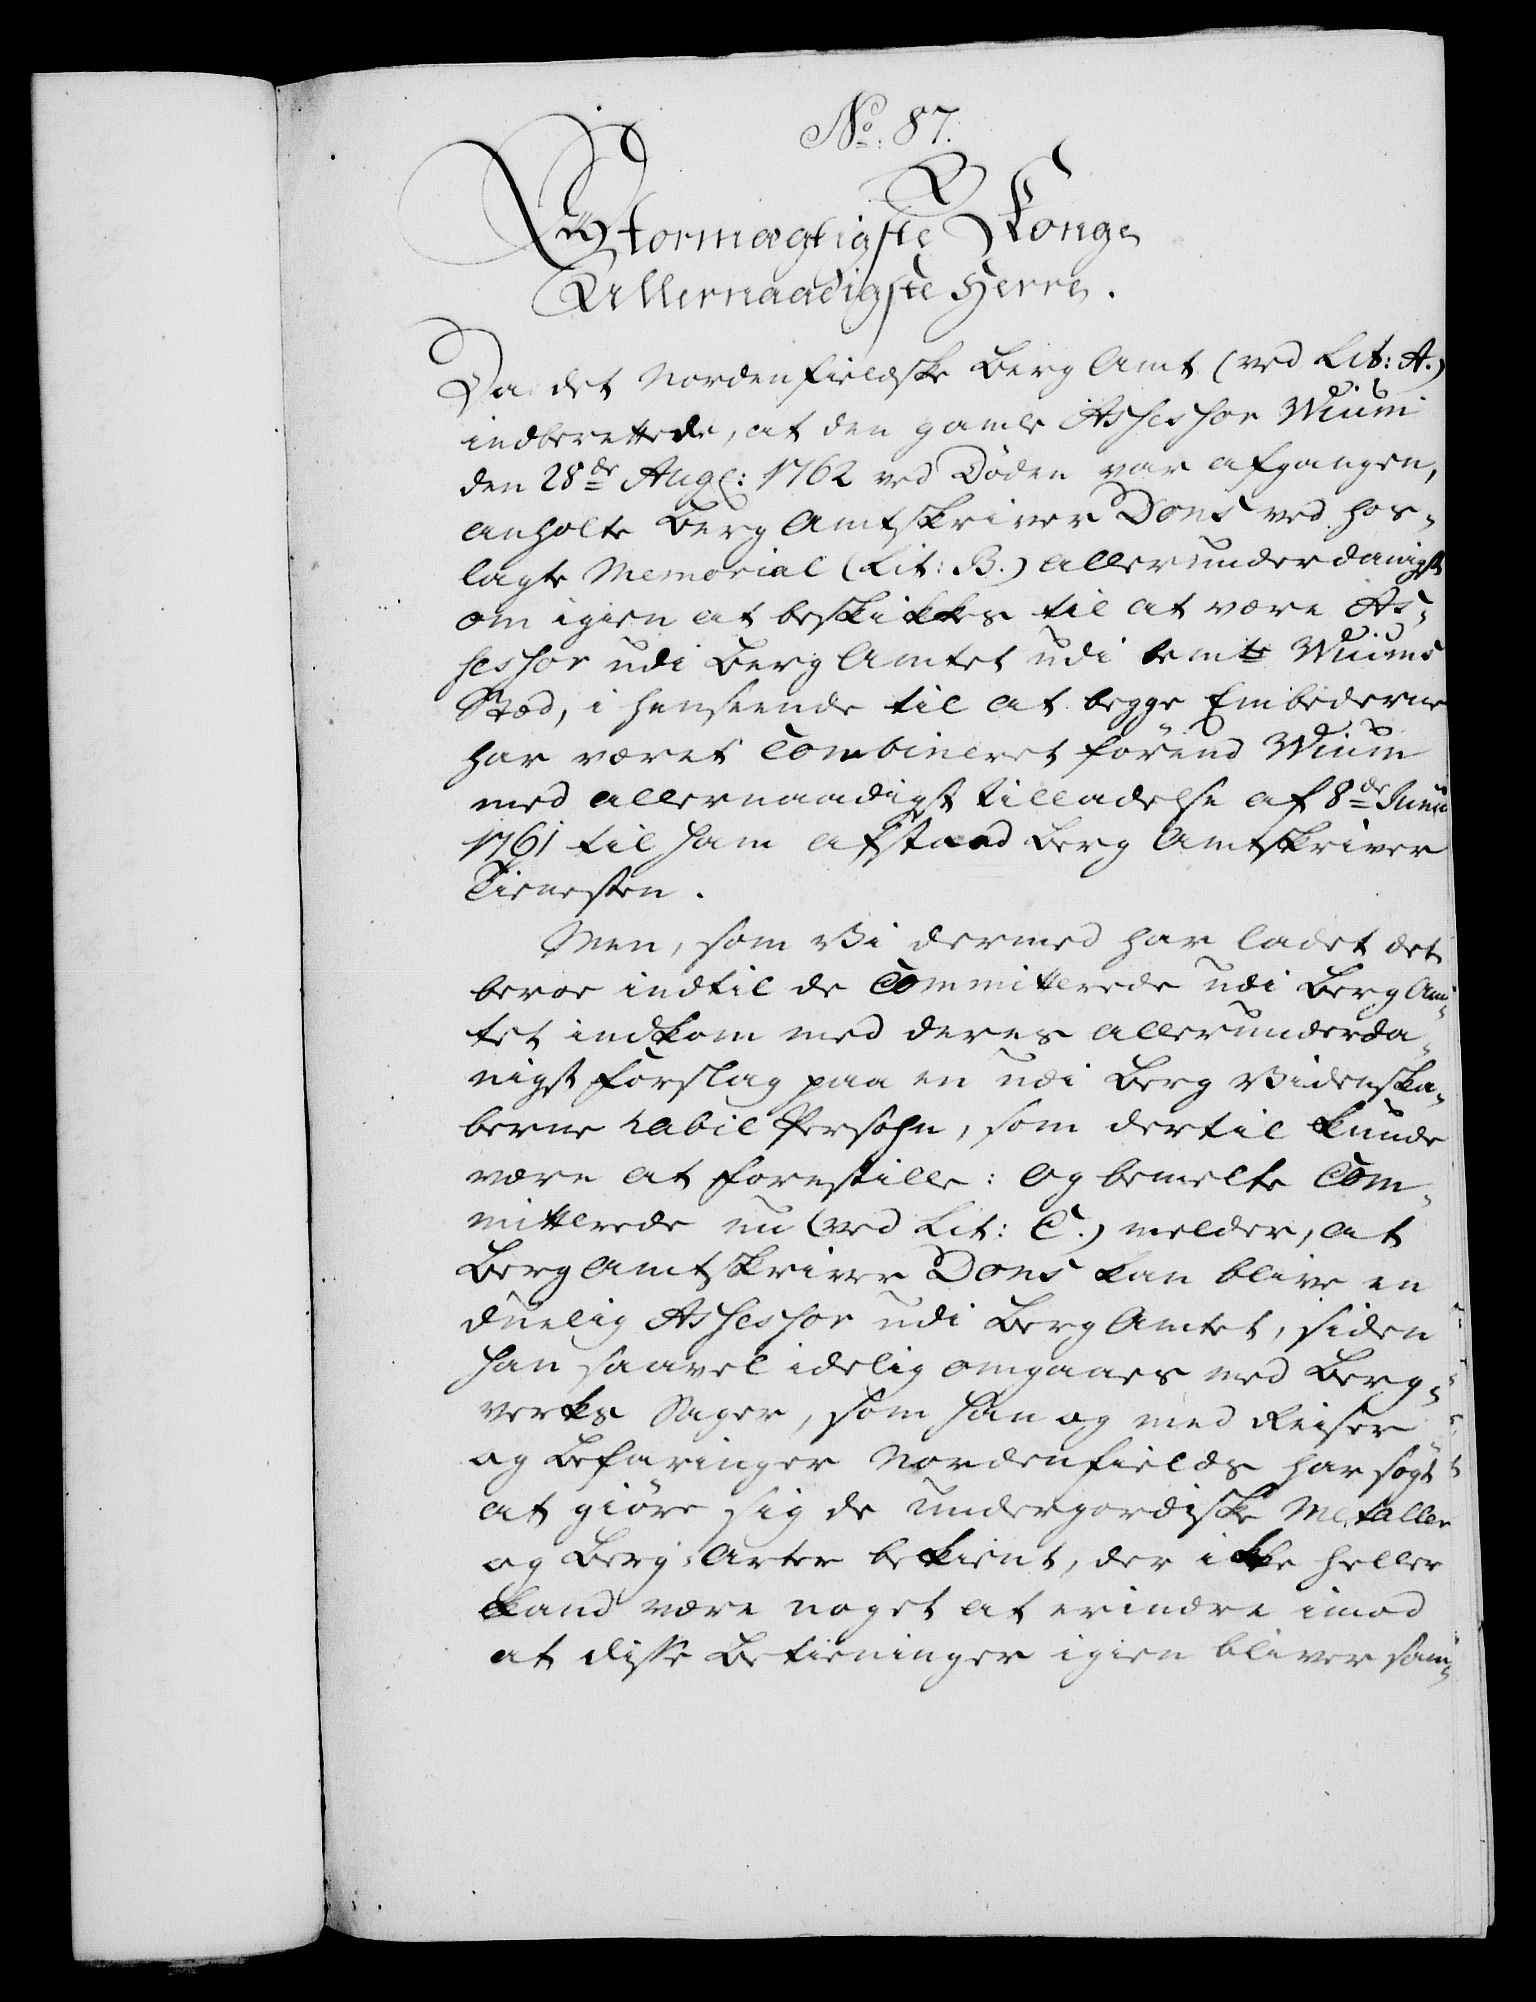 No: 87.
Stormægtigste Konge
Allernaadigste Herre.
Da det Nordenfieldske Berg Amt (ved Lit: A.)
indberettede, at den gamle Assessor Wium
den 28de Aug: 1762 ved Døden var afgangen,
anholte Berg Amtskriver Dons ved hos-
lagte Memorial (Lit: B.) allerunderdanigst
om igien at beskikkes til at være As-
sessor udi Berg Amtet udi bemte Wiums
Stæd, i henseende til at begge Embederne
har været Combineret førend Wium
med allernaadigst tilladelse af 8de Junii
1761 til ham afstaaed Berg Amtskriver
Tienesten.
Men, som Vi dermed har ladet det
beroe indtil de Committerede udi Berg Am-
tet indkom med deres allerunderda-
nigst Forslag paa en udi Berg Videnska-
berne habil Persohn, som dertil kunde
være at forestille: Og bemelte Com-
mitterede nu (ved Lit: C.) melder, at
Berg Amtskriver Dons kan blive en
duelig Assessor udi Berg Amtet, siden
han saavel idelig omgaaes med Berg-
verks Sager, som han og med Reiser
og Befaringer Nordenfields har søgt
at giøre sig de undergordiske Metaller
og Berg-Arter bekient, der ikke heller
kand være noget at erindre imod
at disse Betieninger igien bliver sam-